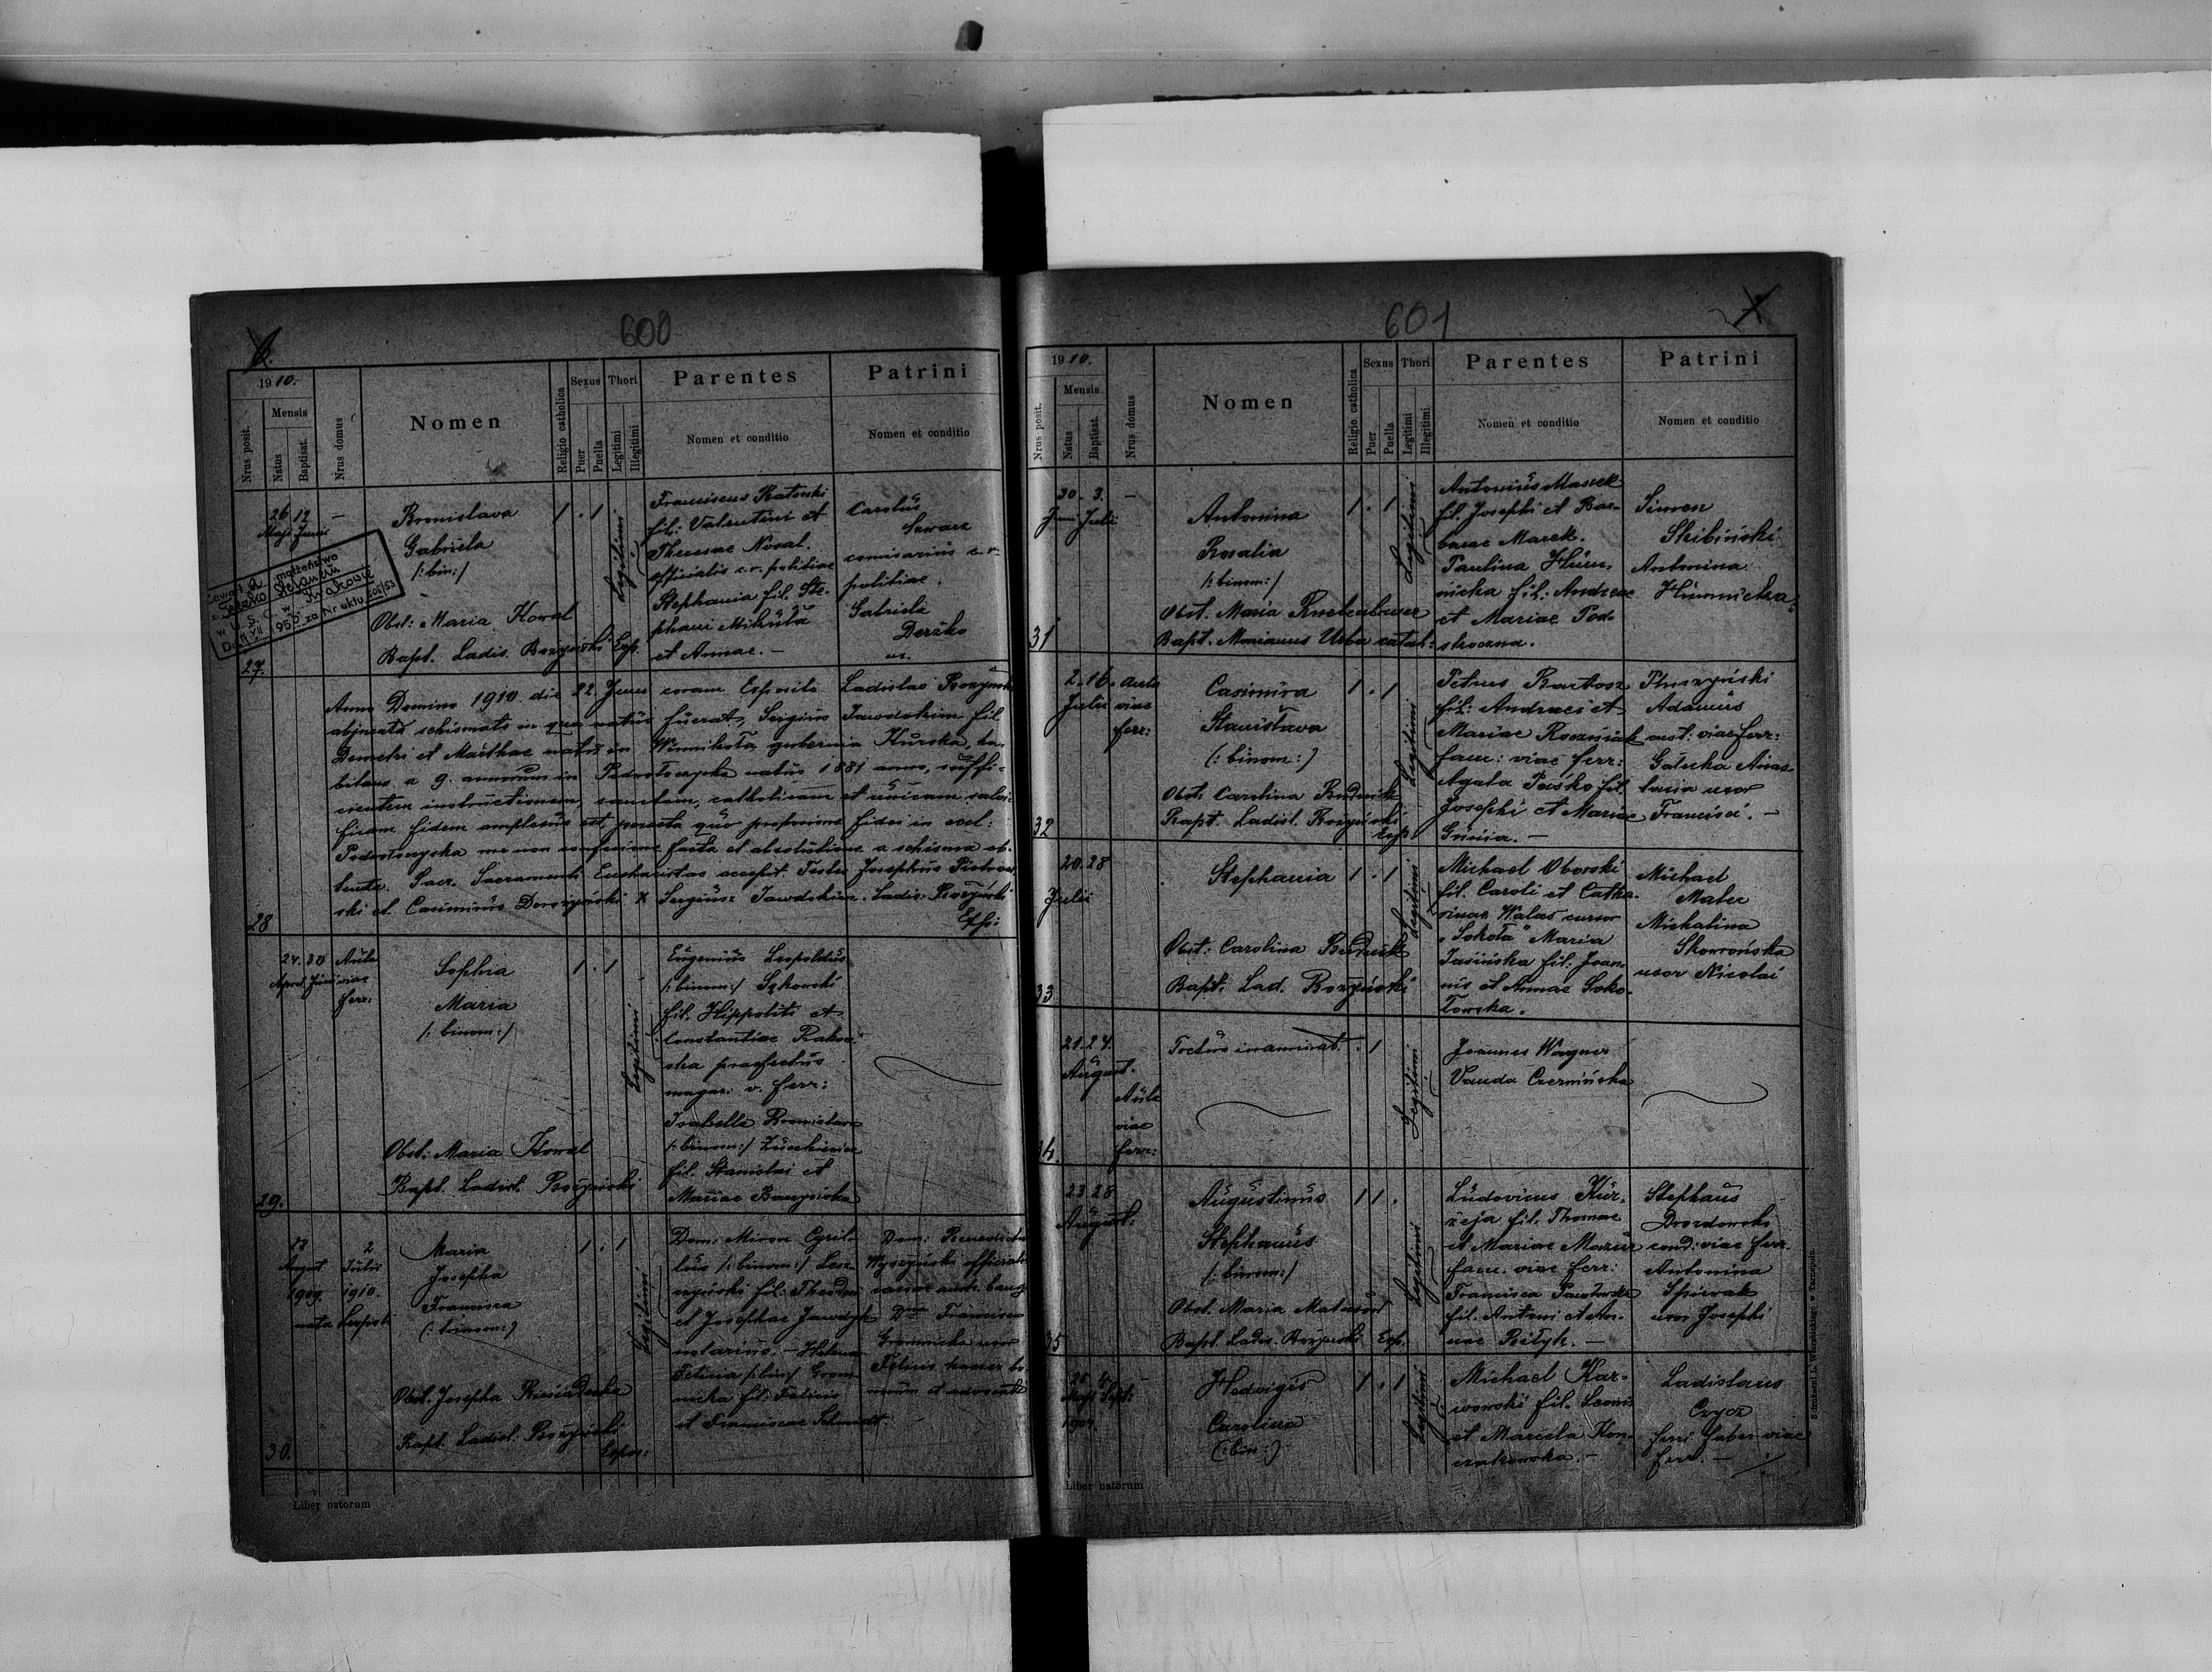 600
6.
1910.
Mensis
Nrus posit.
Natus
Baptisat.
Nrus domus
Nomen
Religio catholica
Sexus
Puer
Puella
Thori
Legitimi
Illegitimi
Parentes
Nomen et conditio
Patrini
Nomen et conditio
27.
26 12 —
Maji Junii
Bronislava
Gabriela
/:bin:/
Obst: Maria Kowal
Bapt. Ladis. Bożyński Exp.
1 . 1
Legitimi
Franciscus Ratowski
fil: Valentini et
Theresae Nowal.
officialis c. r. politiae
Stephania fil. Ste-
phani Mikuła
et Annae. —
Carolus
Szwarz
comisarius c. r.
politiae.
Gabriela
Derżko
małżeństwo
w U. S. C. w Krakowie
za Nr aktu
28
Anno Domino 1910. die 22. Junii coram Exposito Ladislao Bożyński
abjurata schismati in quo natus fuerat, Sergius Jawdokim fil.
Demetri et Marthae natus in Winnikoła, gubernia Kurska, ha-
bitans a 9. annorum in Podwołoczyska natus 1881 anno, suffi-
cientem instructionem, sanctam, catholicam et unicam salvi-
ficam fidem amplexus est peracta quo professione fidei in eccl:
Podwołoczyska me non confessione facta et absolutione a schisma ob-
tenta. Sacr. Sacramenti Eucharistas accepit. Testes Josephus Piotrow-
ski et Casimirus Derszyński X Sergiusz Jawdokim. Ladis. Bożyński
Exp:
29.
24. 30 Aula
April. Juni viae
ferr:
Sophia
Maria
/: binom:/
Obst: Maria Kowal
Bapt. Ladisl. Bożyński
1 . 1
Legitimi
Eugenius Leopoldus
/: binom:/
fil. Hippoliti et
Constantiae Rakow-
ska praefectus
magaz. v. ferr:
Isabella Bronislava
/: binom:/
fil. Stanislai et
Mariae
30.
18 2
August Julii
1909. 1910.
nata Leopoli
Maria
Josepha
Francisca
(: trinom:)
Obst. Josepha
Bapt. Ladisl. Bożyński
Expos:
1 . 1
Legitimi
Dom: Miron Cyril-
lus /: binom:/ Lesz-
czyński fil: Theodori
et Josephae
notarius. — Helena
Felicia /: bin:/ Grom-
nicka fil: Felicis
et Franciscae Schmidt
Dom: Benedictus
Wyszyński officialis
Dna Francisca
Gromnicka uxor
Felicis
et advocati
Liber natorum
601
1910.
Mensis
Nrus posit.
Natus
Baptisat.
Nrus domus
Nomen
Religio catholica
Sexus
Puer
Puella
Thori
Legitimi
Illegitimi
Parentes
Nomen et conditio
Patrini
Nomen et conditio
31
30. 3. —
Juni Julii
Antonina
Rosalia
/: binom:/
Obst. Maria
Bapt. Marianus Urba catech:
1 . 1
Legitimi
Antonius Masiek
fil. Josephi et Bar-
barae Marek.
Paulina Humi-
nicka fil. Andreae
et Mariae Pod-
skoczna.
Simon
Skibiński
Antonina
Huminicka
32
2. 16. Aula
Julii viae
ferr:
Casimira
Stanisława
(: binom:)
Obst. Carolina Budnik
Bapt. Ladisl. Bożyński
Exp.
1 . 1
Legitimi
Petrus Bartosz
fil: Andreae et
Mariae Roczniak
fam: viae ferr:
Agata Paśko fil
Josephi et Mariae
Gnieia. —
Pluszyński
Adamus
aest: viae ferr:
Gałuska Anas-
tasia uxor
Francisci. —
33
20. 28
Julii
Stephania
Obst: Carolina Budnik
Bapt: Lad. Bożyński
1 . 1
Legitimi
Michael Oborski
fil. Caroli et Catha-
rinae Walas cursor
„Sokoła" Maria
Jasińska fil: Joan-
nis et Annae Soko-
łowska.
Michael
Mater
Michalina
Skowrońska
uxor Nicolai
34.
21. 27.
August.
Aula
viae
ferr:
Foetus inanimat.
. 1
Legitimi
Joannes Wagner
Vanda Czermińska
35
23 28
August.
Augustinus
Stephanus
/: binom:/
Obst. Maria
Bapt. Ladis. Bożyński Exp.
1 1 .
Legitimi
Ludovicus Kur-
zeja fil. Thomae
et Mariae Mazur
fam. viae ferr:
Francisca Pawłowska
fil. Antoni et An-
nae Białyk. —
Stephanus
Drozdowski
cond: viae ferr.
Antonina
Śpiewak
uxor Josephi
Sept:
Hedvigis
Carolina
(: bin:)
1 . 1
Legitimi
Michael Kar-
wowski fil. Leonis
et Marcela Kon-
czakowska. —
Ladislaus
Czycz
ferri faber viae
ferr. —
Liber natorum
Z drukarni L. Wierzbickiego w Tarnopolu.